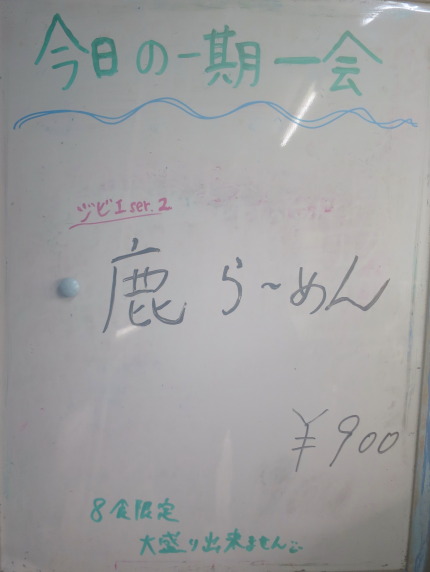 今日の一期一会
ジビエser.2
鹿 ら〜めん
¥900
8食限定
大盛り出来ません